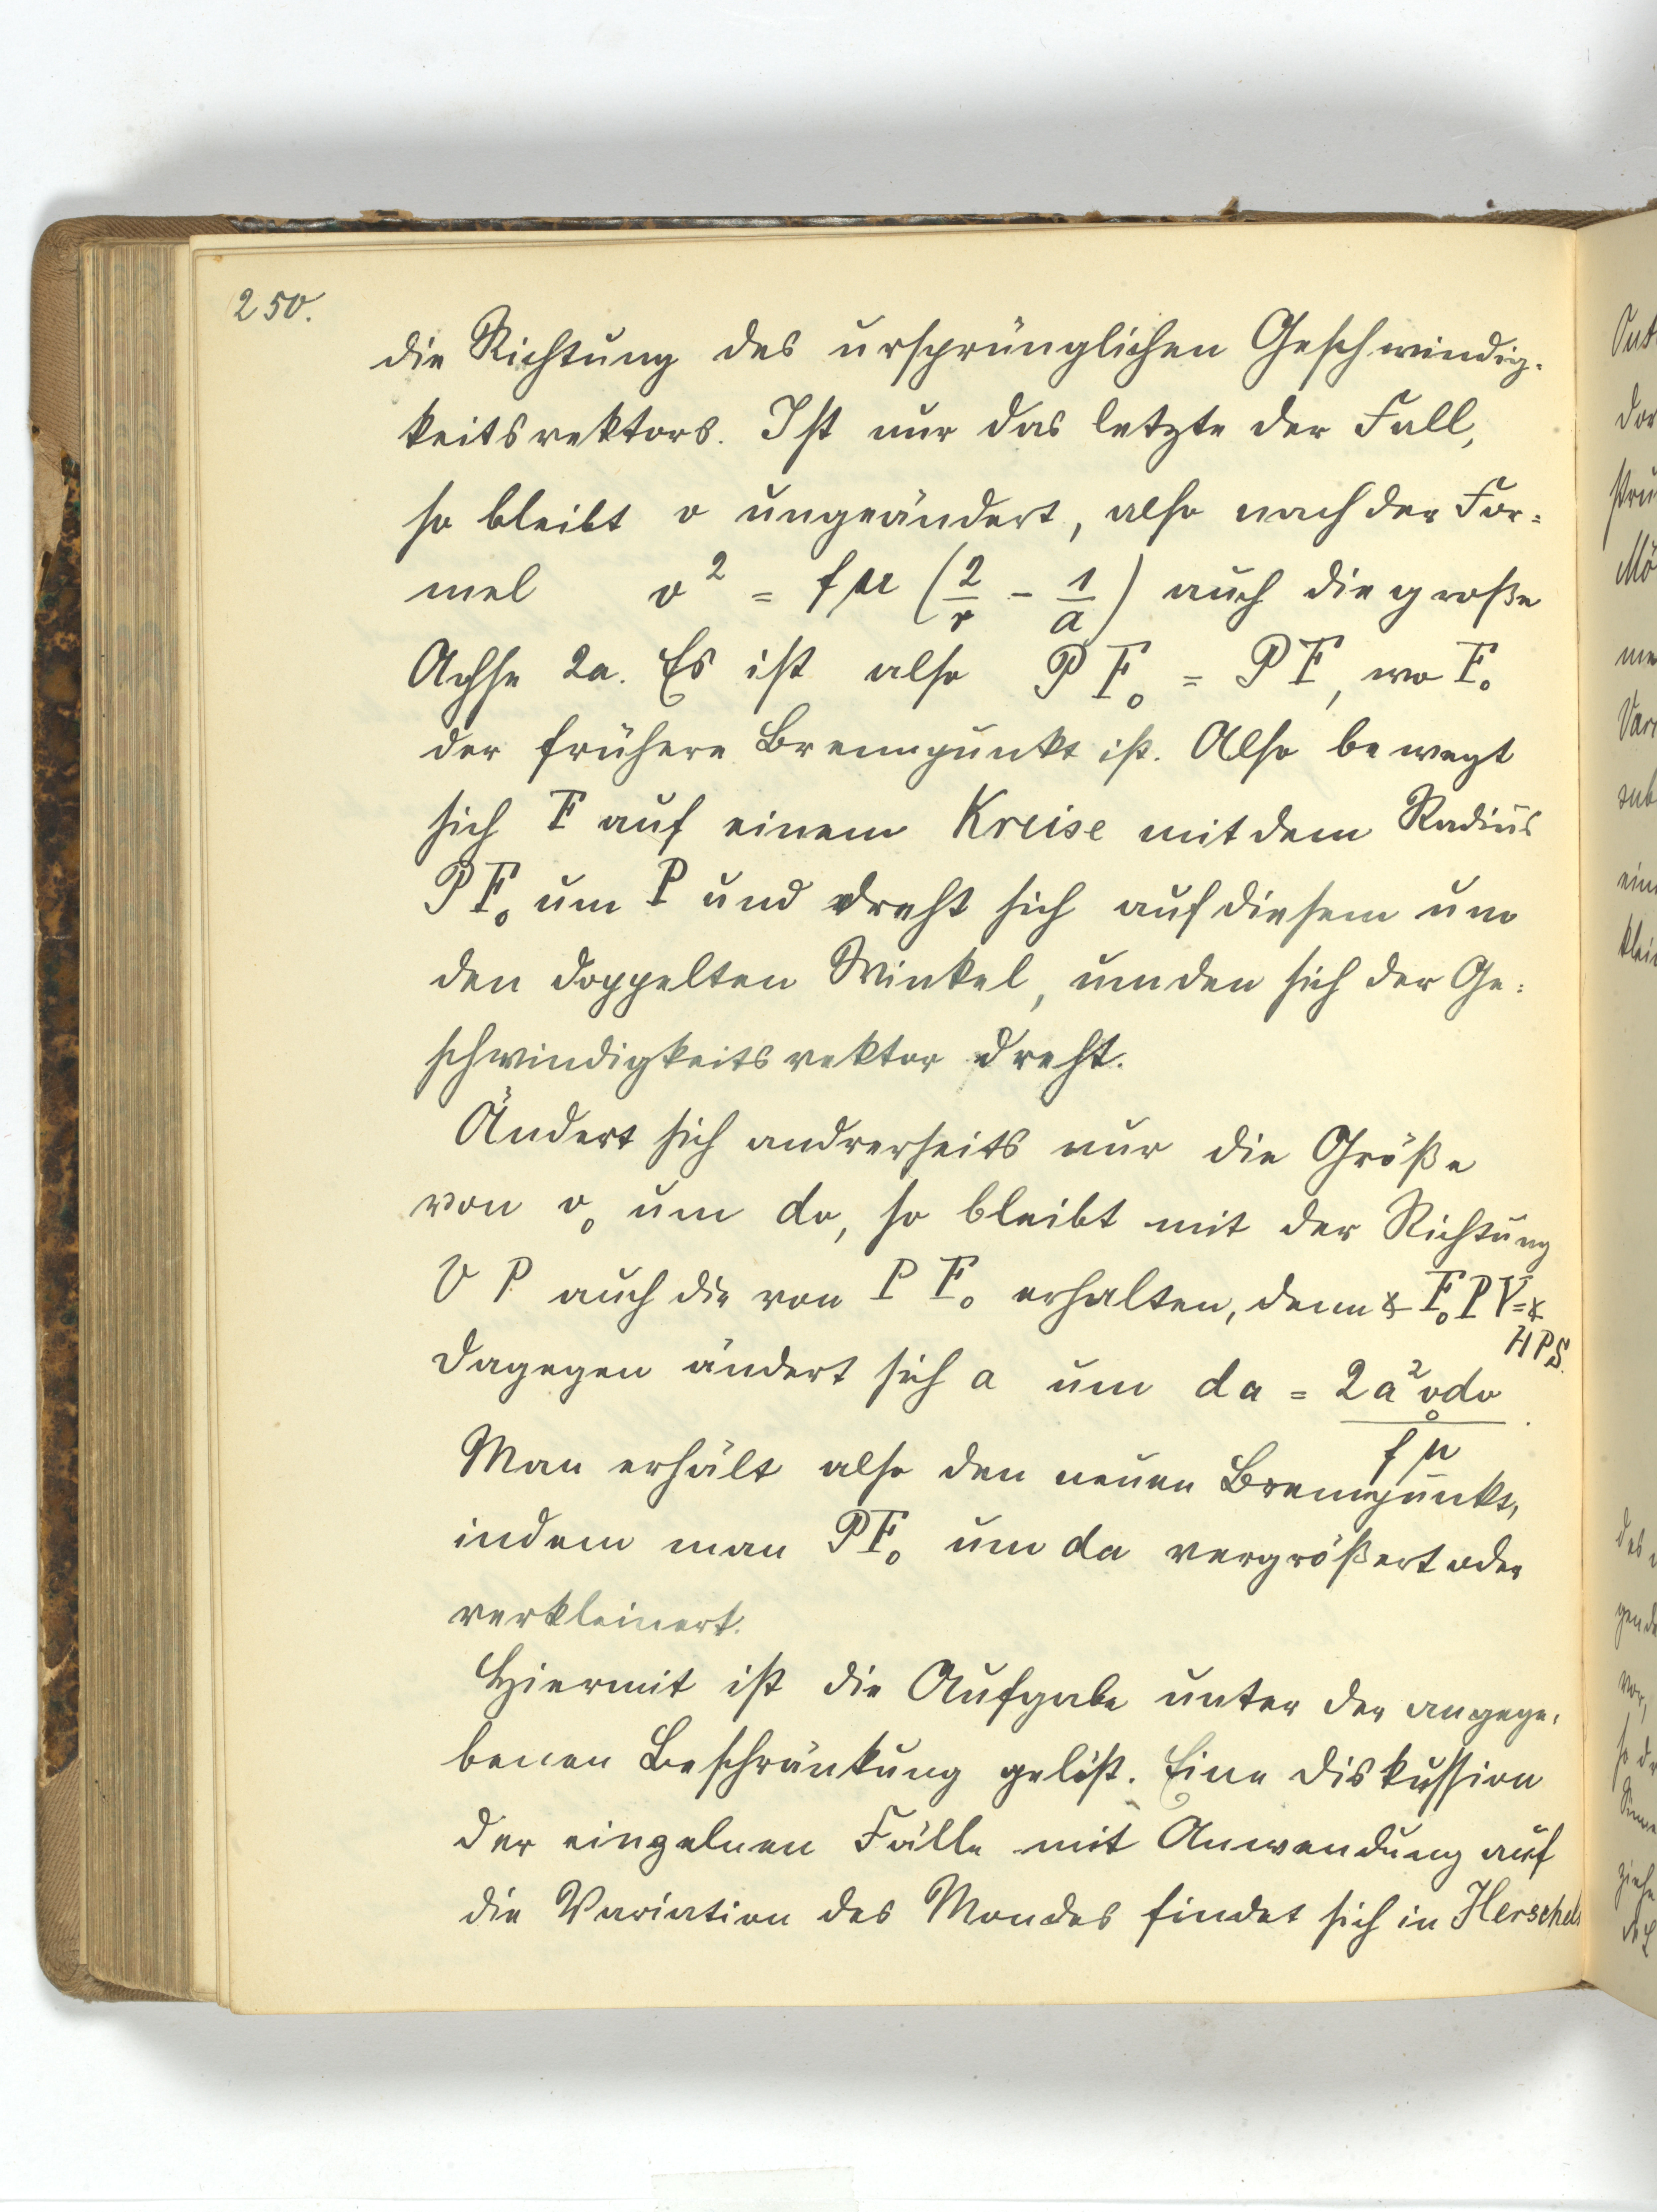 250.
die Richtung des ursprünglichen Geschwindig-
keitsvektors. Ist nur das letzte der Fall,
so bleibt v ungeändert, also nach der For-
mel v² = fμ (2/r - 1/a) auch die große
Achse 2a. Es ist also PF₀ = PF, wo F₀
der frühere Brennpunkt ist. Also bewegt
sich F auf einem Kreise mit dem Radius
PF₀ um P und dreht sich auf diesem um
den doppelten Winkel, um den sich der Ge-
schwindigkeitsvektor dreht.
Ändert sich andrerseits nur die Größe
von v₀ um dv, so bleibt mit der Richtung
V P auch die von P F₀ erhalten, denn ∢ F₀PV=∢
HPS.
dagegen ändert sich a um da = 2a²v₀dv / fμ .
Man erhält also den neuen Brennpunkt,
indem man PF₀ um da vergrößert oder
verkleinert.
Hiermit ist die Aufgabe unter der angege-
benen Beschränkung gelöst. Eine Diskussion
der einzelnen Fälle mit Anwendung auf
die Variation des Mondes findet sich in Herschels